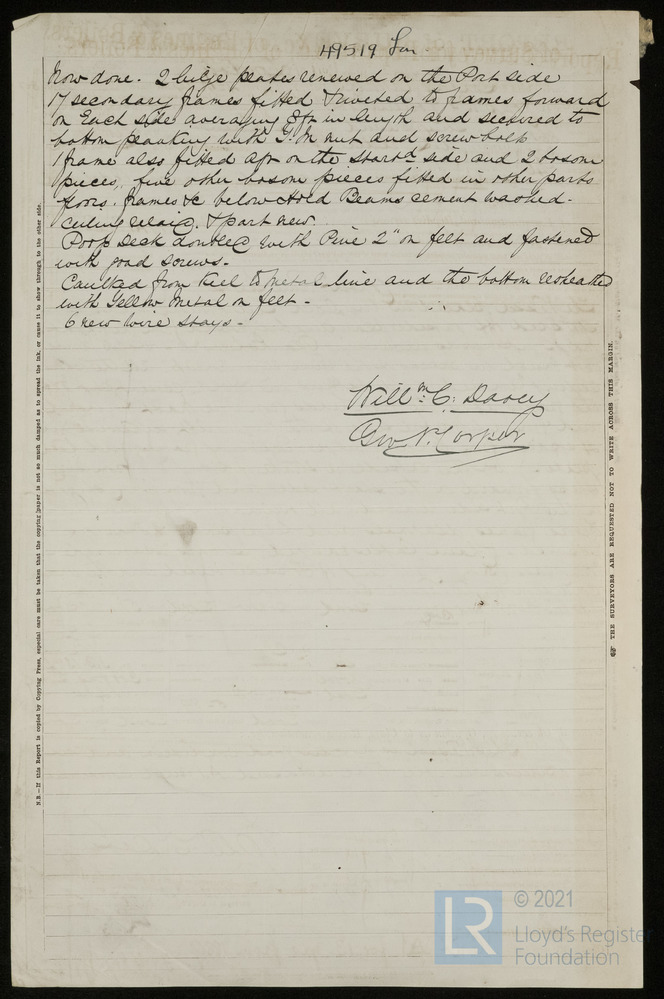 49519 Lon.
Now done. 2 bilge plates renewed on the Port side
17 secondary frames fitted & riveted to frames forward
on Each side averaging 8ft in length and secured to
bottom planking with Y. M nut and screw bolts
1 frame also fitted aft on the starbd side and 2 bosom
pieces, five other bosom pieces fitted in other parts
floors, frames &c below Hold Beams cement washed.
Ceiling relaid, & part new.
Poop Deck doubled with Pine 2" on felt and fastened
with good screws.
Caulked from Keel to metal line and the bottom resheathed
with Yellow metal on felt.
6 new wire stays.
Willm C. Davey
Geo N. Cooper
N.B.—If this Report is copied by Copying Press, especial care must be taken that the copying paper is not so much damped as to spread the ink, or cause it to show through to the other side.
☞ THE SURVEYORS ARE REQUESTED NOT TO WRITE ACROSS THIS MARGIN.
LR
© 2021
Lloyd's Register
Foundation